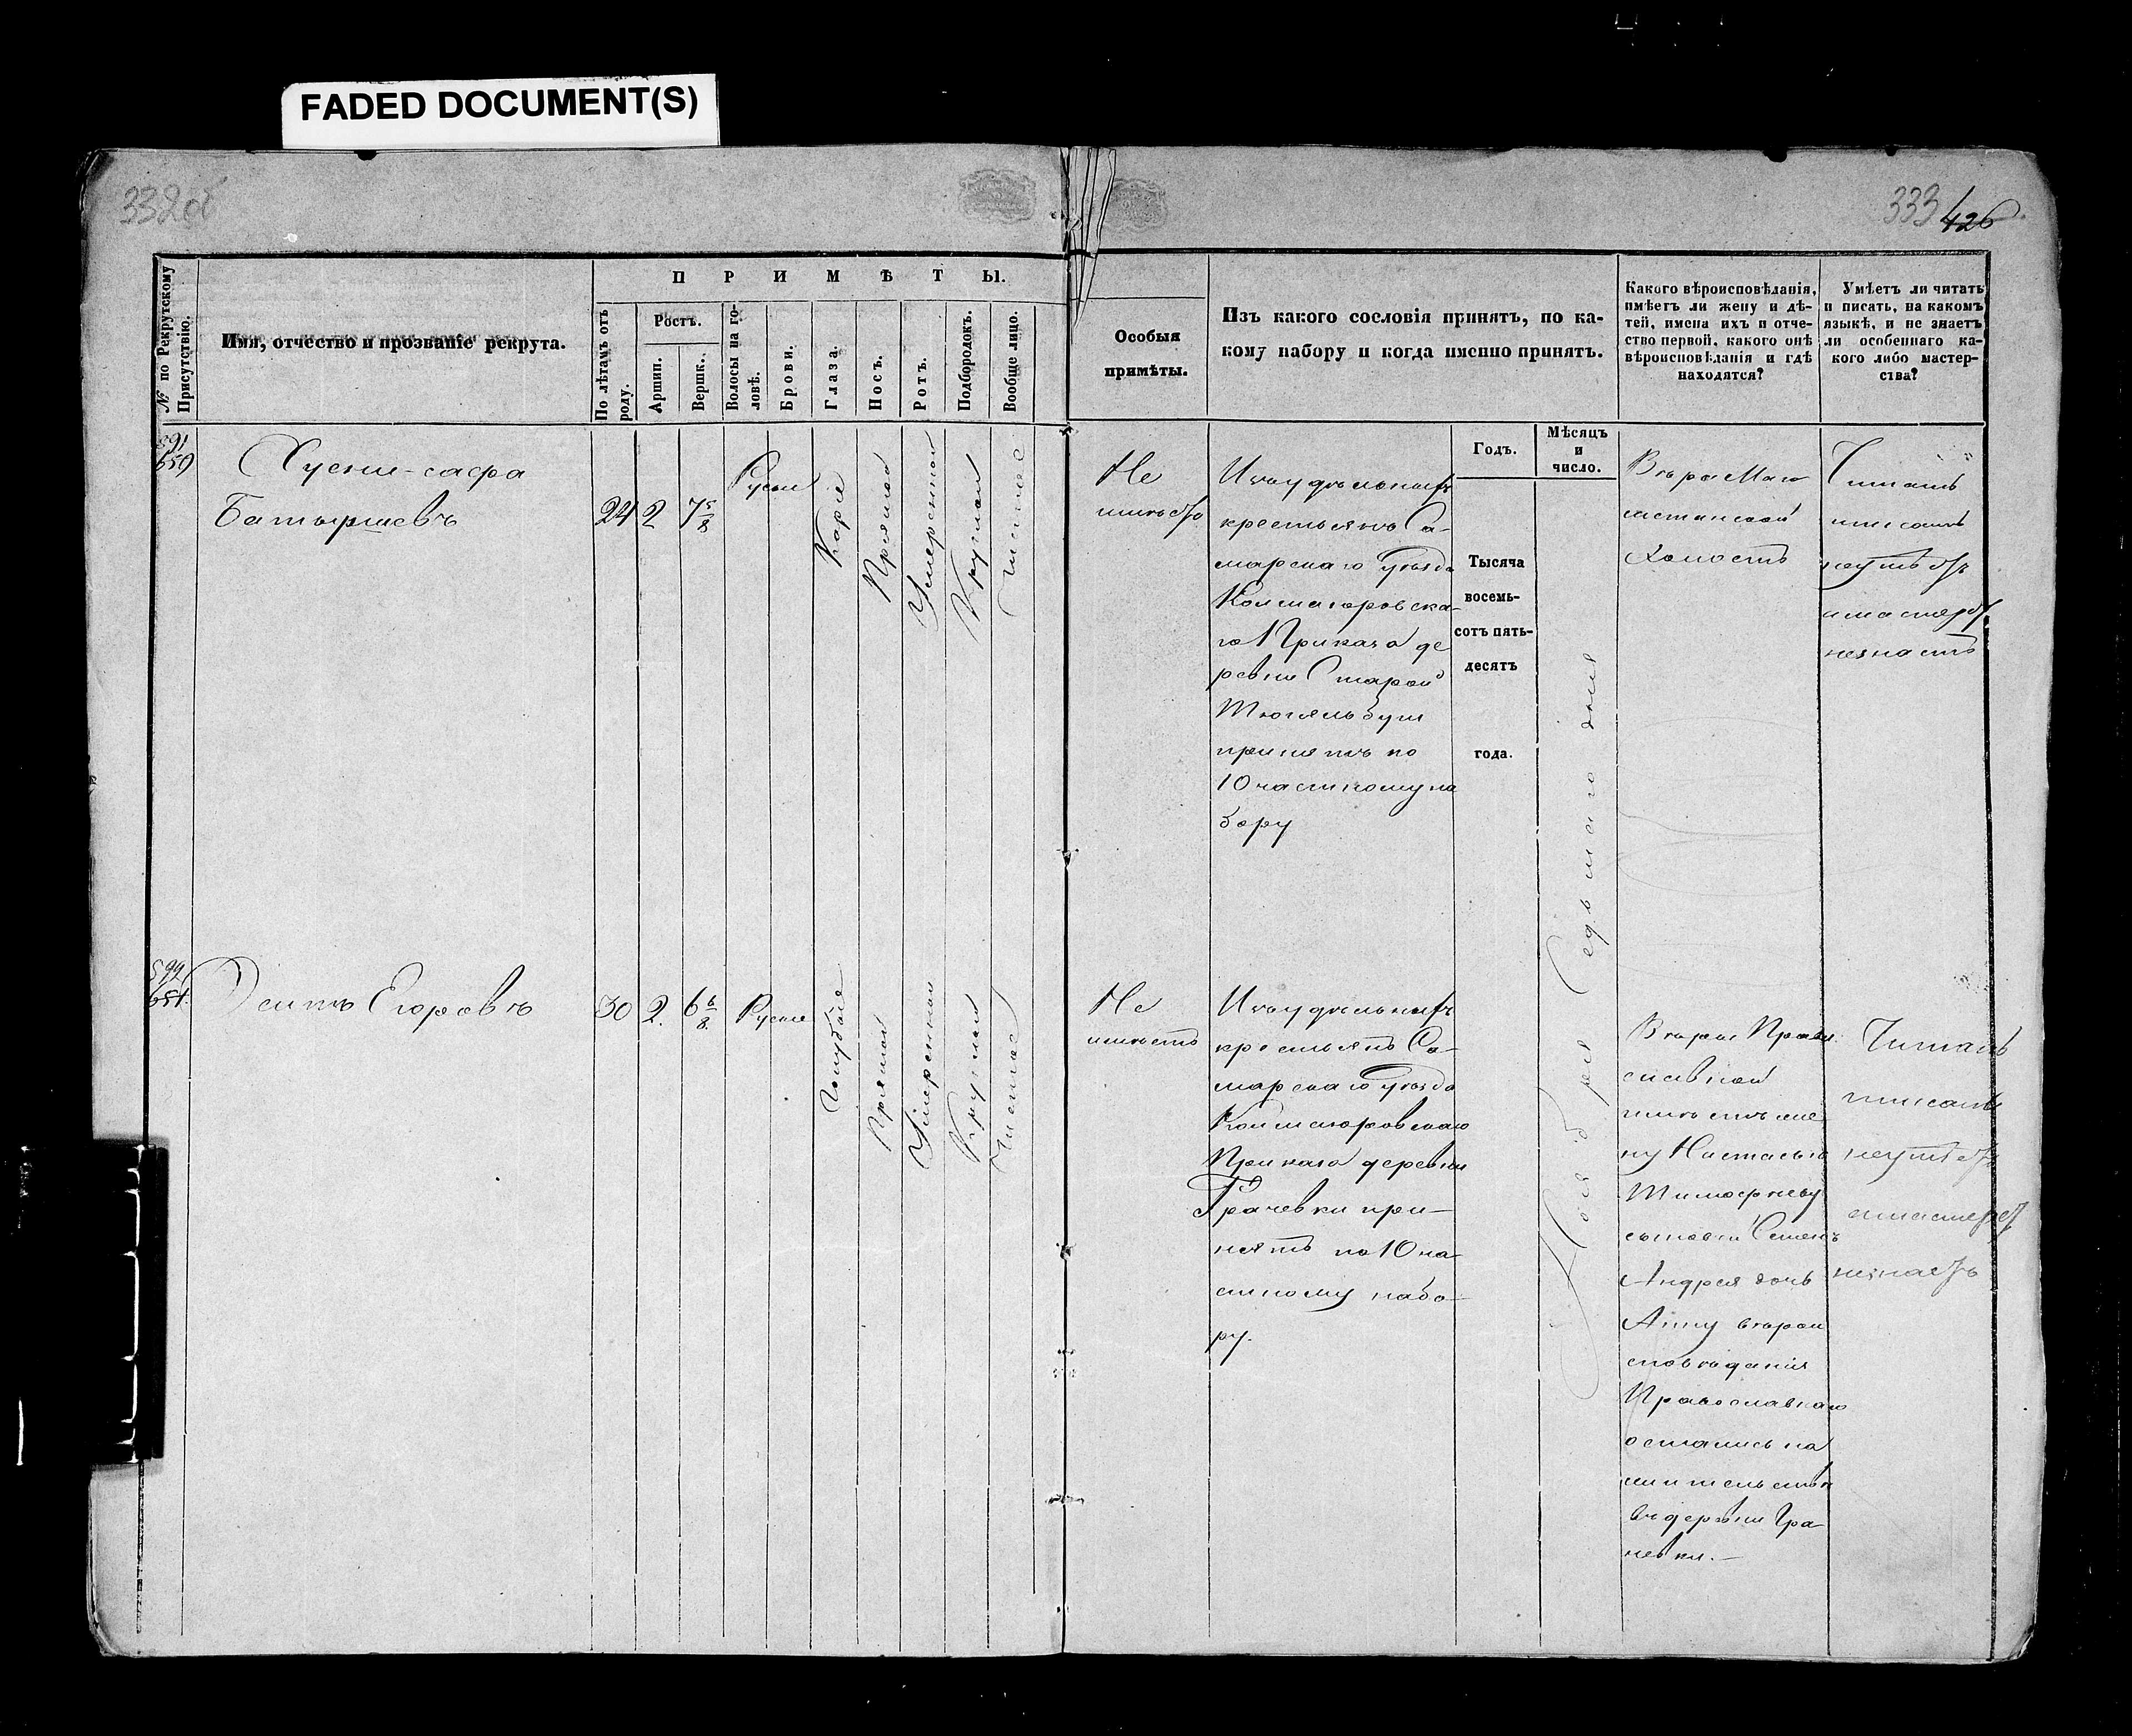 FADED DOCUMENT(S)
332об
333 426
№ по Рекрутскому Присутствію.
Имя, отчество и прозваніе рекрута.
ПРИМѢТЫ.
По лѣтамъ отъ роду.
Ростъ.
Аршин.
Вершк.
Волосы на головѣ.
Брови.
Глаза.
Носъ.
Ротъ.
Подбородокъ.
Вообще лицо.
Особыя
примѣты.
Изъ какого сословія принятъ, по ка-
кому набору и когда именно принятъ.
Какого вѣроисповѣданія,
имѣетъ ли жену и дѣ-
тей, имена ихъ и отче-
ство первой, какого онѣ
вѣроисповѣданія и гдѣ
находятся?
Умѣетъ ли читать
и писать, на какомъ
языкѣ, и не знаетъ
ли особеннаго ка-
кого либо мастер-
ства?
Годъ.
Мѣсяцъ
и
число.
Тысяча
восемь-
сотъ пять-
десятъ
года.
Ноября Седьмаго дня
650
Хусни-сафа
Батыршевъ
24 2 7 5/8
Русые
Каріе
Прямой
Умеренной
Круглой
Чистое
Не
имѣетъ
Изъ удѣльныхъ
крестьянъ Са-
марскаго Уѣзда
Колмагоровска-
го Приказа де
ревни Старой
Тюгальбуги
принятъ по
10 частному на
бору
Вѣры Маго
метанской
холостъ
Читать
писать
неумѣетъ
имастерст.
незнаетъ
651.
Осипъ Егоровъ
30 2. 6 6/8
Русые
Голубые
Прямой
Умеренной
Круглой
Чистое
Не
имѣетъ
Изъ удѣльныхъ
крестьянъ Са-
марскаго Уѣзда
Колмагоровскаго
Приказа деревни
Грачевки при-
нятъ по 10 ча-
стному набо-
ру.
Вѣры Право
славной
имѣетъ же
ну Настасью
Тимофееву
сыновей Семенъ
Андрея дочь
Анну вѣрои
сповѣданія
Православнаго
остались на
жительствѣ
въ деревни Гра
чевки.-
Читать
писать
неумѣетъ
имастерст
незнаетъ